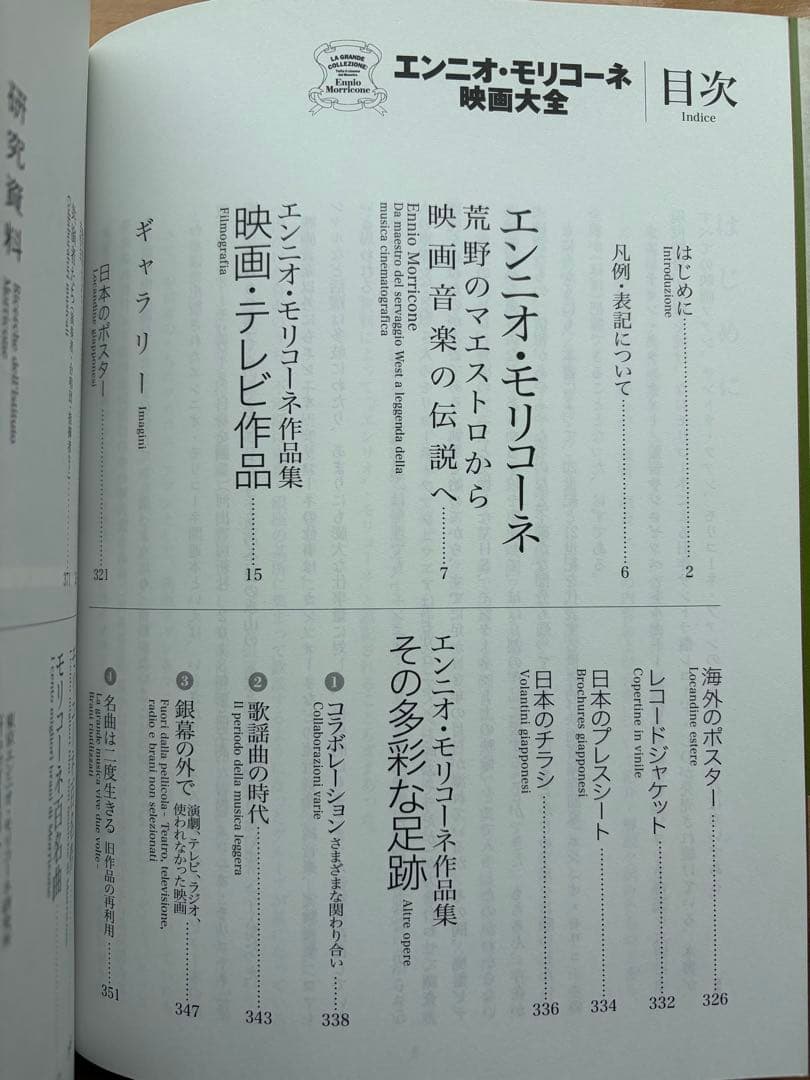 目次
Indice
エンニオ・モリコーネ
映画大全
LA GRANDE
COLLEZIONE:
Ennio
Morricone
はじめに………2
Introduzione
凡例・表記について………6
エンニオ・モリコーネ
荒野のマエストロから
映画音楽の伝説へ………7
Ennio Morricone
Da maestro del servaggio West a leggenda della
musica cinematografica
エンニオ・モリコーネ作品集
映画・テレビ作品………15
Filmografia
ギャラリー Imagini
日本のポスター………321
Locandine giapponesi
海外のポスター………326
Locandine estere
レコードジャケット………332
Copertine in vinile
日本のプレスシート………334
Brochures giapponesi
日本のチラシ………336
Volantini giapponesi
エンニオ・モリコーネ作品集
その多彩な足跡 Altre opere
1 コラボレーション さまざまな関わり合い………338
Collaborazioni varie
2 歌謡曲の時代………343
Il periodo della musica leggera
3 銀幕の外で 演劇、テレビ、ラジオ、
使われなかった映画………347
Fuori dalla pellicola - Teatro, televisione,
radio e brani non selezionati
4 名曲は二度生きる 旧作品の再利用………351
La grande musica vive due volte -
Brani riutilizzati
研究資料
371
モリコーネ百名曲